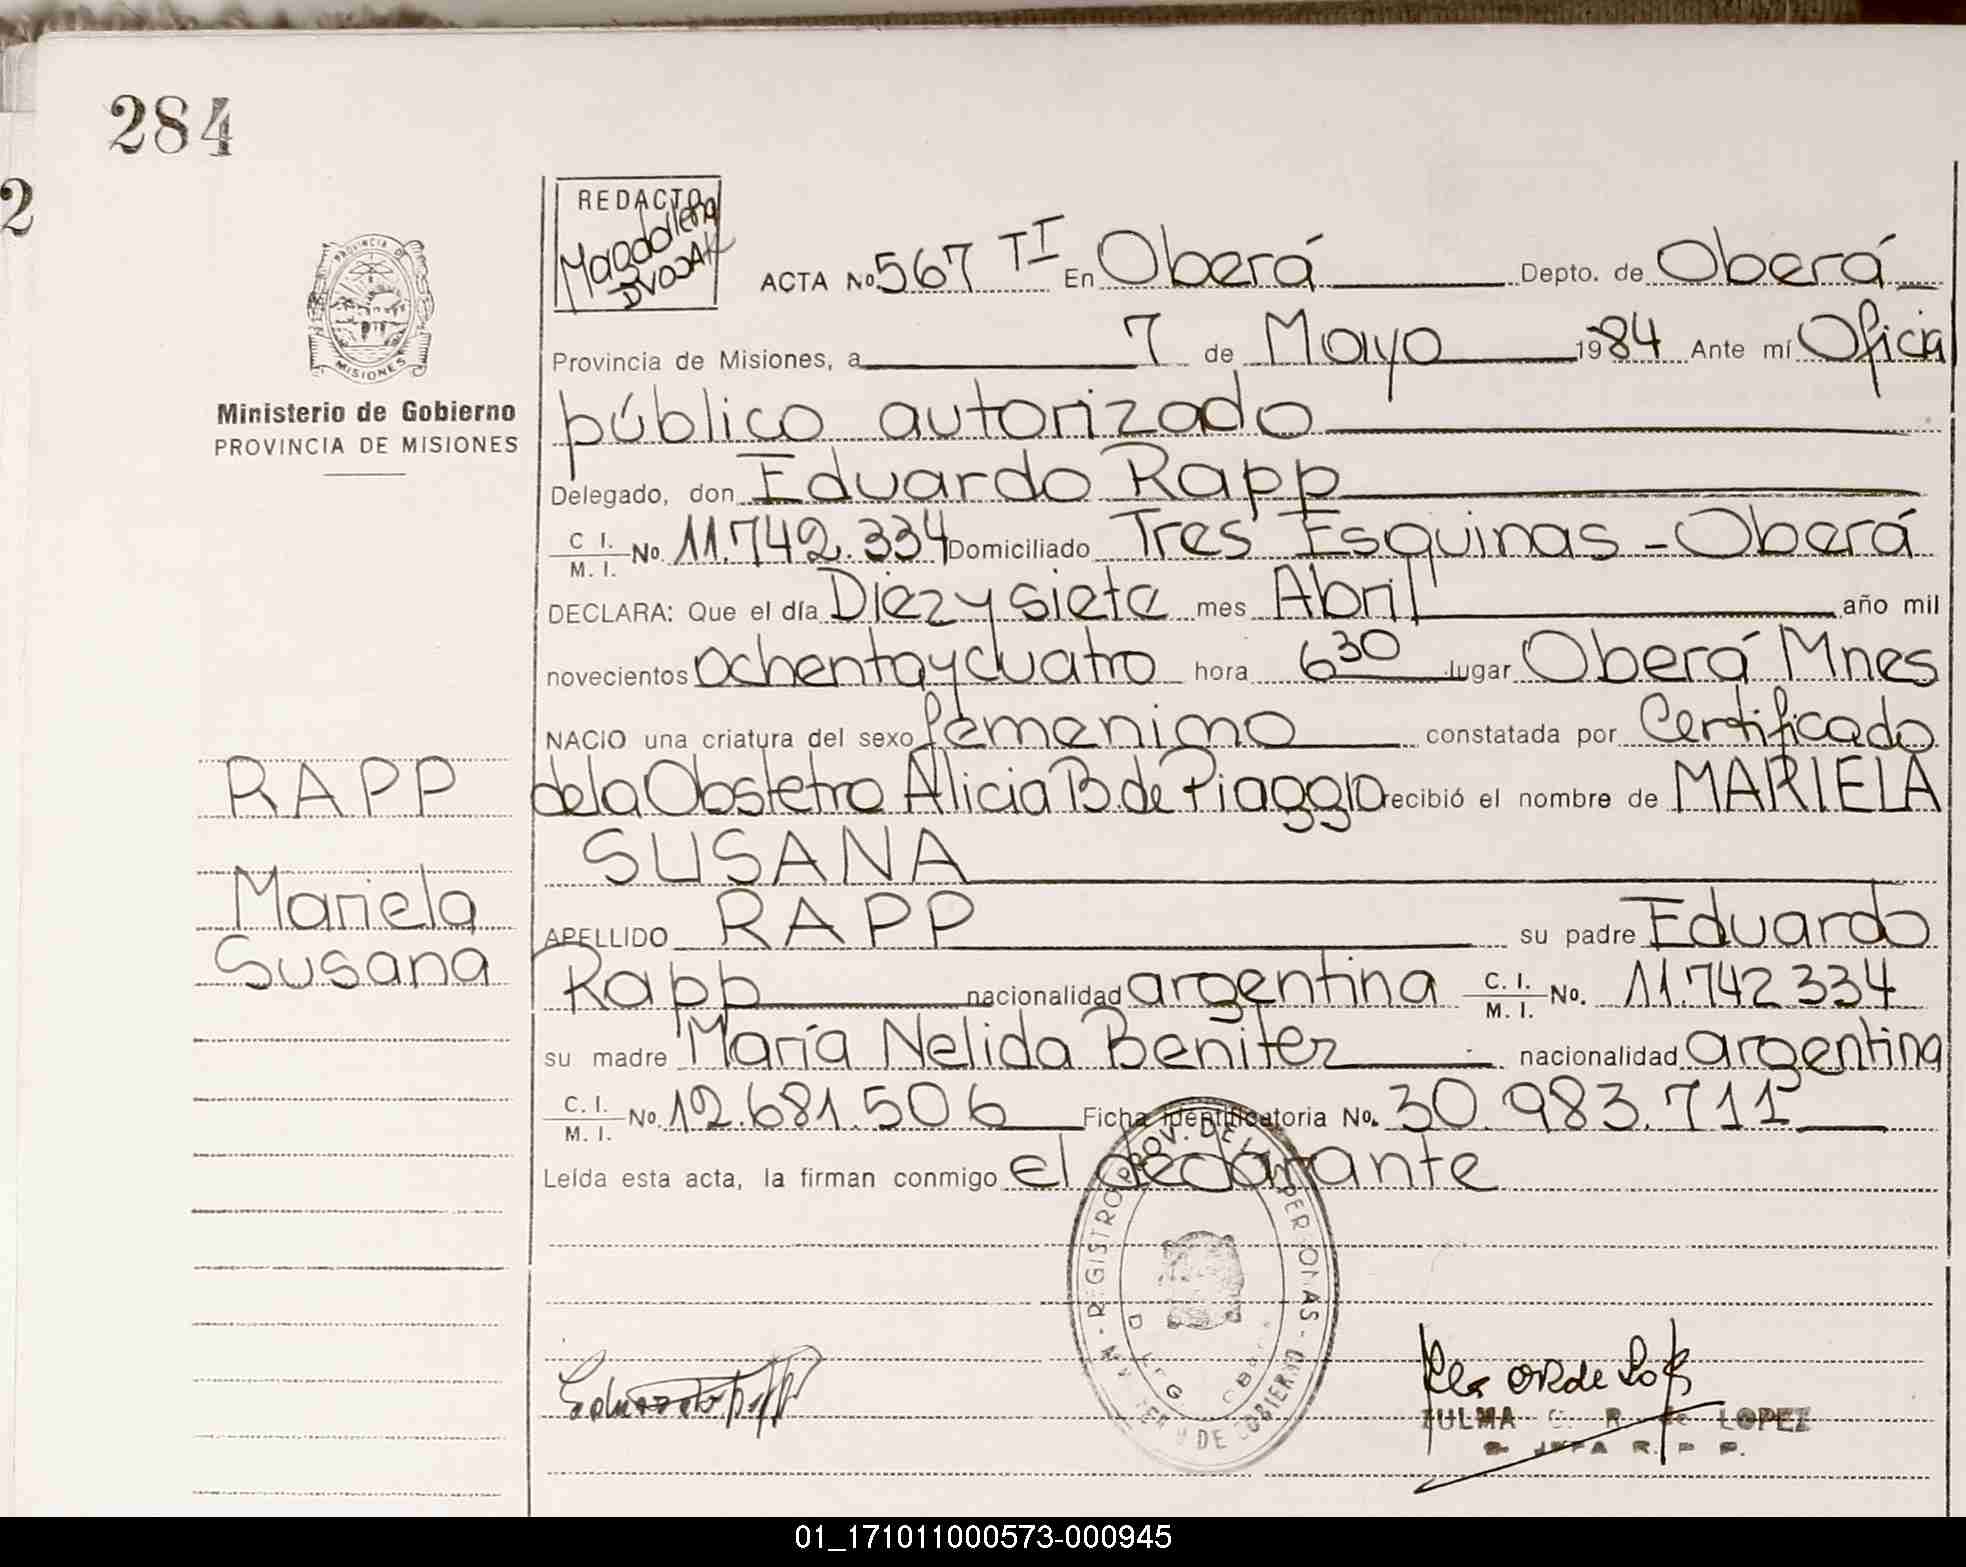 284
2
REDACTO
Magdalena
DVOJAK
ACTA No. 567 TI En Oberá Depto. de Oberá
Provincia de Misiones, a 7 de Mayo 1984 Ante mí Oficial
público autorizado
Delegado, don Eduardo Rapp
C I. / M. I. No. 11.742.334 Domiciliado Tres Esquinas - Oberá
DECLARA: Que el día Diez y siete mes Abril año mil
novecientos ochenta y cuatro hora 6 30 lugar Oberá Mnes
NACIO una criatura del sexo femenino constatada por Certificado
de la Obstetra Alicia B. de Piaggio recibió el nombre de MARIELA
SUSANA
APELLIDO RAPP su padre Eduardo
Rapp nacionalidad argentina C. I. / M. I. No. 11.742 334
su madre María Nelida Benitez nacionalidad argentina
C. I. / M. I. No. 12.681.506 Ficha identificatoria No. 30.983.711
Leída esta acta, la firman conmigo el declarante
PROVINCIA DE
MISIONES
Ministerio de Gobierno
PROVINCIA DE MISIONES
RAPP
Mariela
Susana
REGISTRO PROV. DE LAS PERSONAS - MINISTERIO DE GOBIERNO
Eduardo Rapp
ZULMA R. de LOPEZ
JEFA R. P. P.
01_171011000573-000945